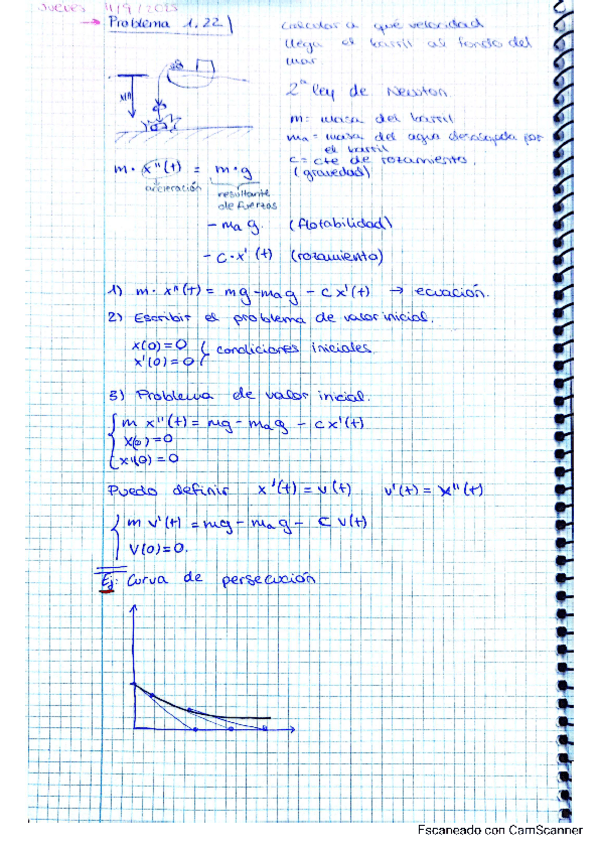 Jueves 11/9/2025
→ Problema 1.22)
Calcular a qué velocidad
llega el barril al fondo del
mar
x(t)
2ª ley de Newton.
m = masa del barril
ma = masa del agua desalojada por
el barril
c = cte de rozamiento.
m · x''(t) = m · g (gravedad)
aceleración
resultante
de fuerzas
- ma g. (flotabilidad)
- c · x'(t) (rozamiento)
1) m · x''(t) = mg - mag - c x'(t) → ecuación.
2) Escribir el problema de valor inicial.
x(0) = 0
x'(0) = 0
condiciones iniciales.
3) Problema de valor inicial.
m x''(t) = mg - mag - c x'(t)
x(0) = 0
x'(0) = 0
Puedo definir x'(t) = v(t) v'(t) = x''(t)
m v'(t) = mg - mag - c v(t)
v(0) = 0.
Ej: Curva de persecución
Escaneado con CamScanner